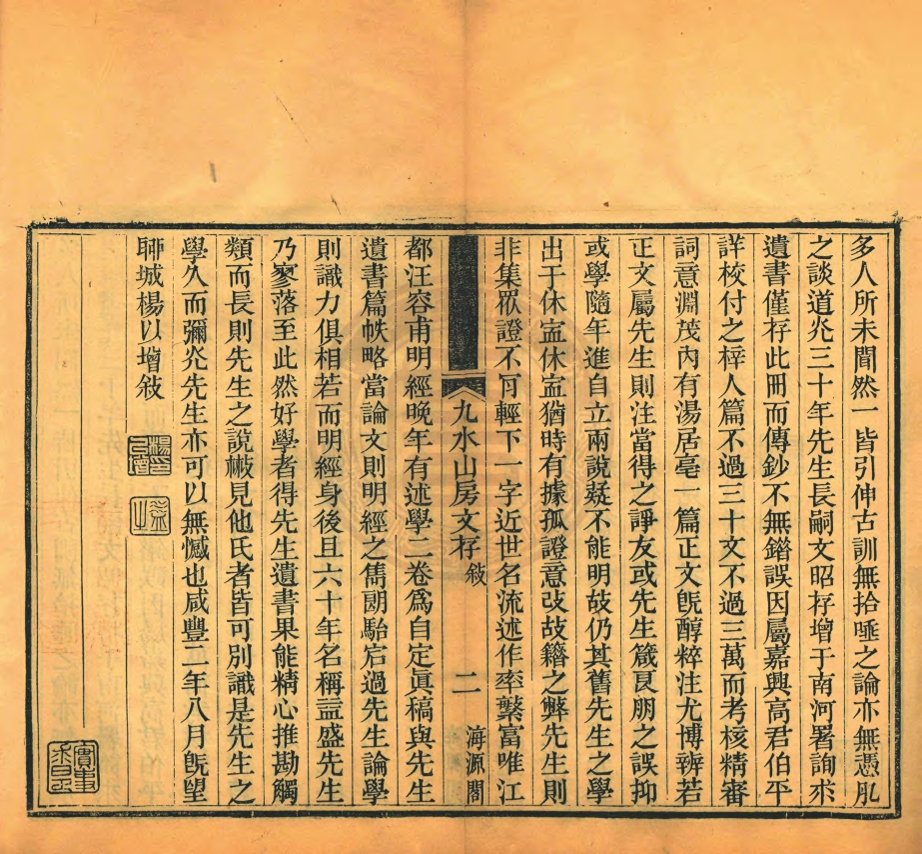 多人所未聞然一皆引伸古訓無拾唾之論亦無憑肊
之談道光三十年先生長嗣文昭存增于南河署詢求
遺書僅存此冊而傳鈔不無錯誤因屬嘉興高君伯平
詳校付之梓人篇不過三十文不過三萬而考核精審
詞意淵茂內有湯居亳一篇正文旣醇粹注尤博辨若
正文屬先生則注當得之諍友或先生箴良朋之誤抑
或學隨年進自立兩說疑不能明故仍其舊先生之學
出于休寍休寍猶時有據孤證意攷故籍之弊先生則
非集眾證不肎輕下一字近世名流述作率繁富唯江
九水山房文存敘 二 海源閣
都汪容甫明經晚年有述學二卷爲自定眞稿與先生
遺書篇帙略當論文則明經之雋朗駘宕過先生論學
則識力俱相若而明經身後且六十年名稱益盛先生
乃寥落至此然好學者得先生遺書果能精心推勘觸
類而長則先生之說㪤見他氏者皆可別識是先生之
學久而彌光先生亦可以無憾也咸豐二年八月旣望
聊城楊以增敘
實事求是